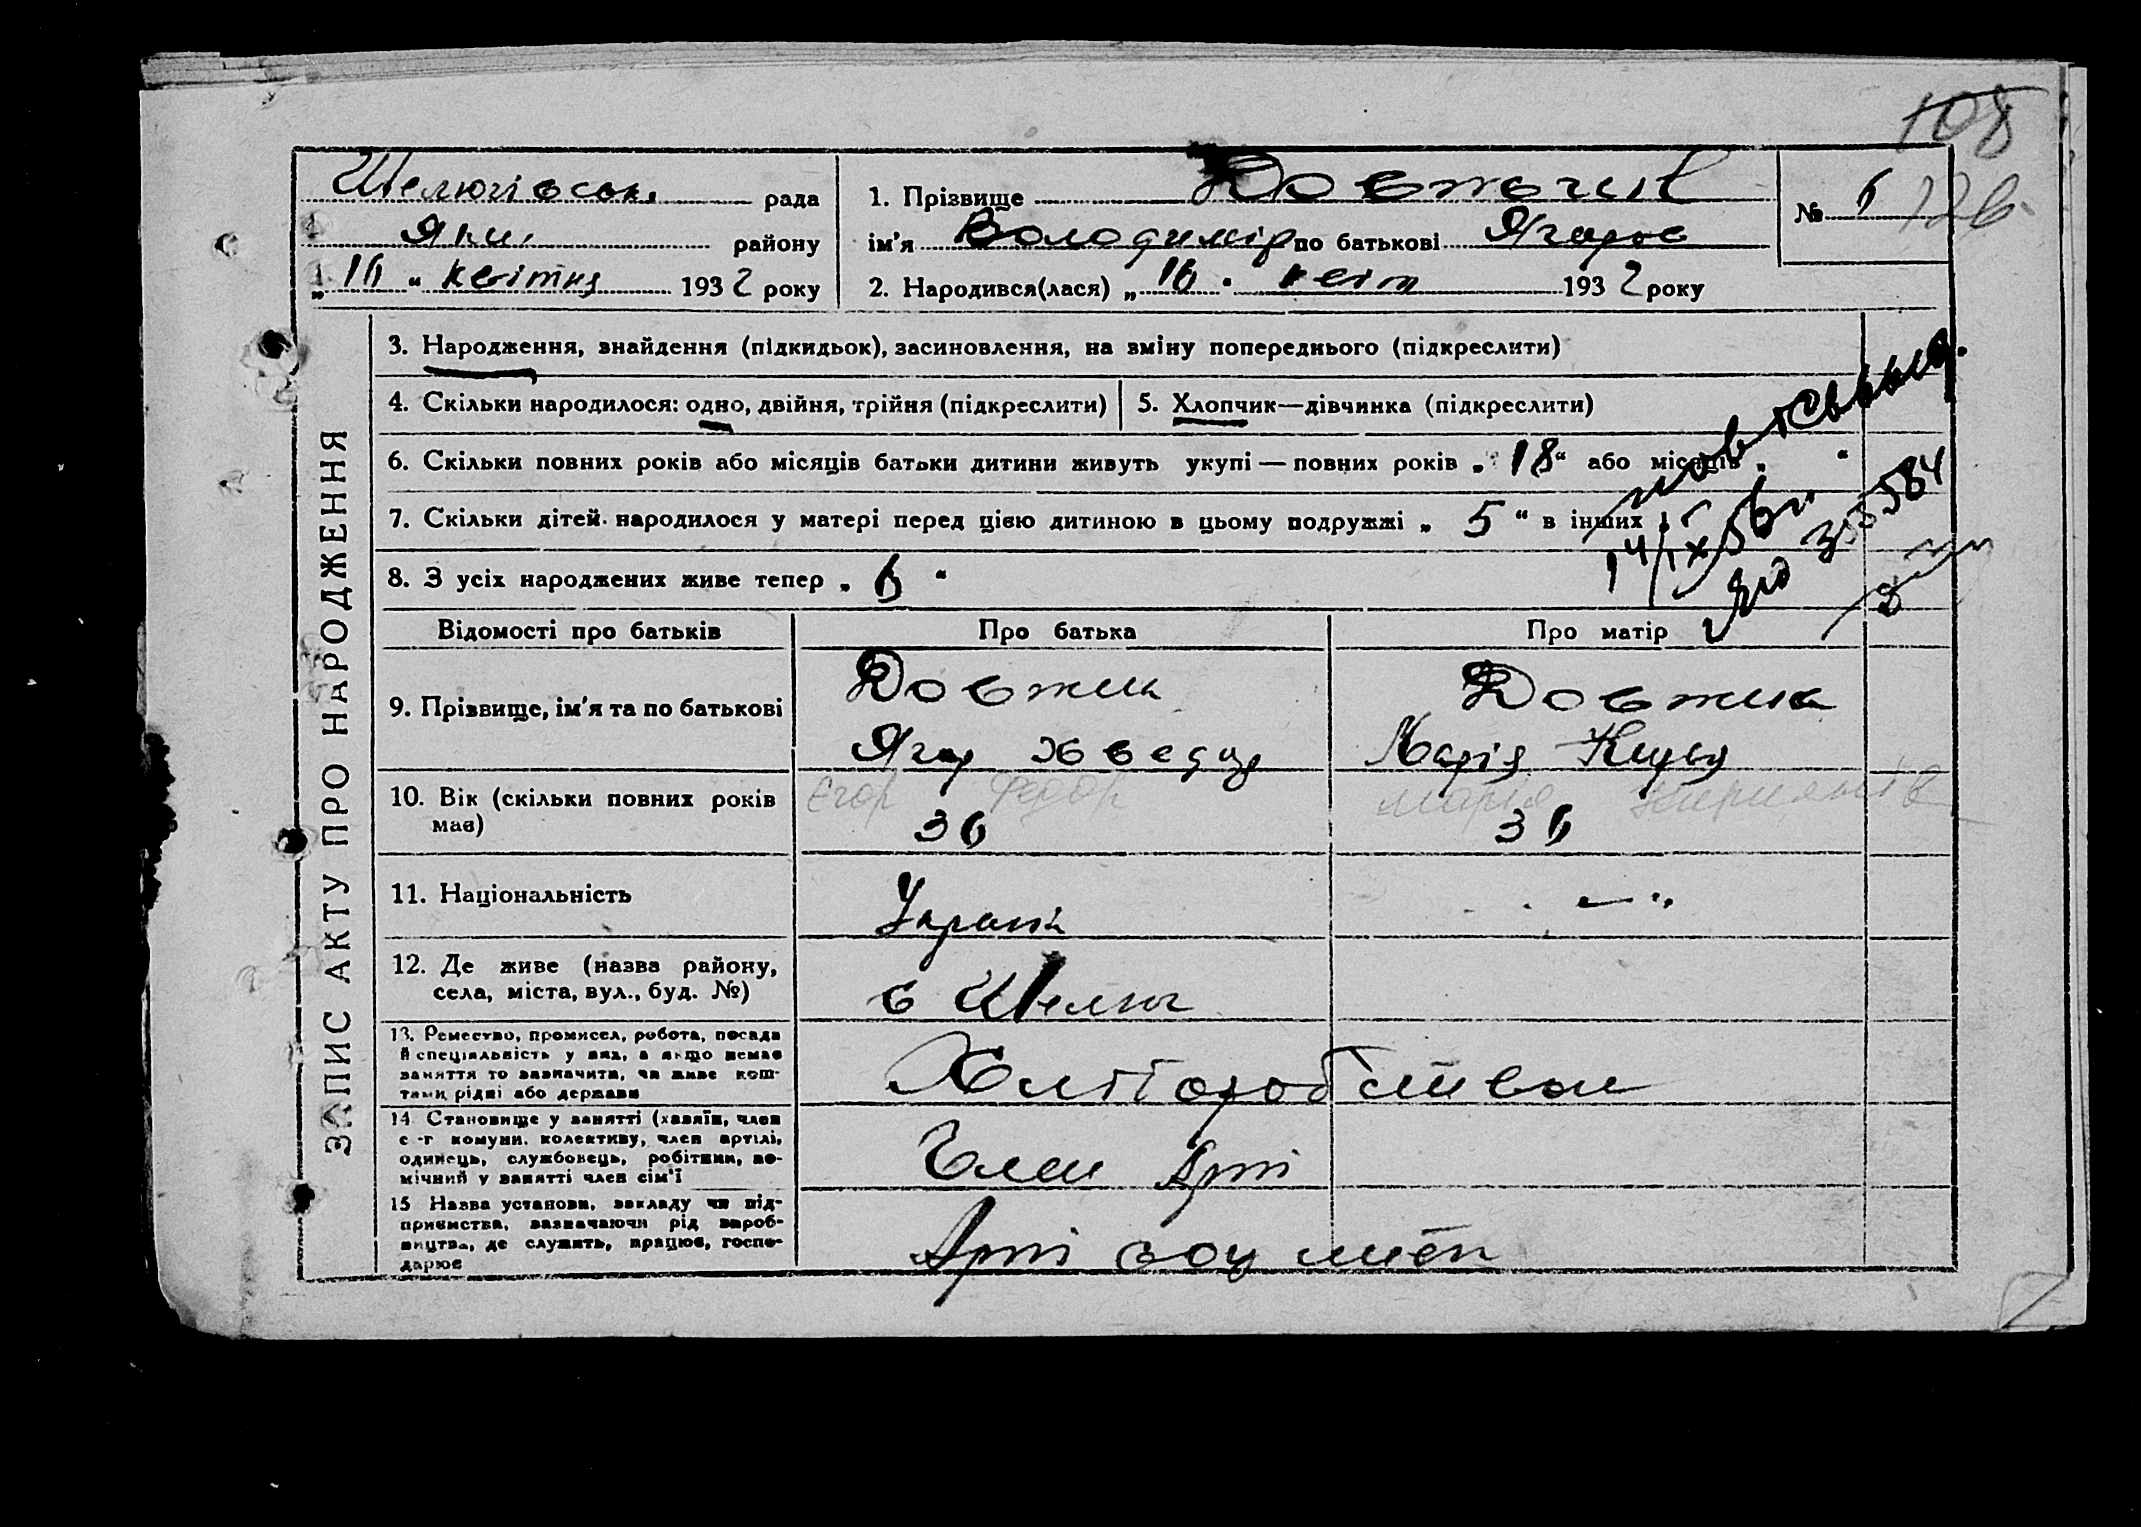 108
Шелюгівськ. рада
Яки. району
„16“ квітня 1932 року
1. Прізвище Довжик
ім'я Володимір по батькові Ягоров
2. Народився(лася) „16“ квіт 1932 року
№ 6
126
ЗАПИС АКТУ ПРО НАРОДЖЕННЯ
3. Народження, знайдення (підкидьок), засиновлення, на зміну попереднього (підкреслити)
4. Скільки народилося: одно, двійня, трійня (підкреслити)
5. Хлопчик—дівчинка (підкреслити)
6. Скільки повних років або місяців батьки дитини живуть укупі — повних років „18“ або місяців „ “
7. Скільки дітей народилося у матері перед цією дитиною в цьому подружжі „5“ в інших
8. З усіх народжених живе тепер „6“
14/IX 56 г.
Відомості про батьків
Про батька
Про матір
9. Прізвище, ім'я та по батькові
Довжик
Ягор Хведор
Довжик
Марія
Єгор Федор
Марія
10. Вік (скільки повних років
має)
36
36
11. Національність
Україн
— "
12. Де живе (назва району,
села, міста, вул., буд. №)
с Шелюг
13. Ремество, промисел, робота, посада
й спеціяльність у них, а якщо немає
заняття то зазначити, чи живе кош-
тами рідні або держави
Хліборобливом
14 Становище у занятті (хазяїн, член
с -г комуни, колективу, член артілі,
одинець, службовець, робітник, по-
мічний у занятті член сім'ї
Член Арті
15 Назва установи, закладу чи під-
приємства, зазначаючи рід вироб-
ництва, де служить, працює, госпо-
дарює
Арті